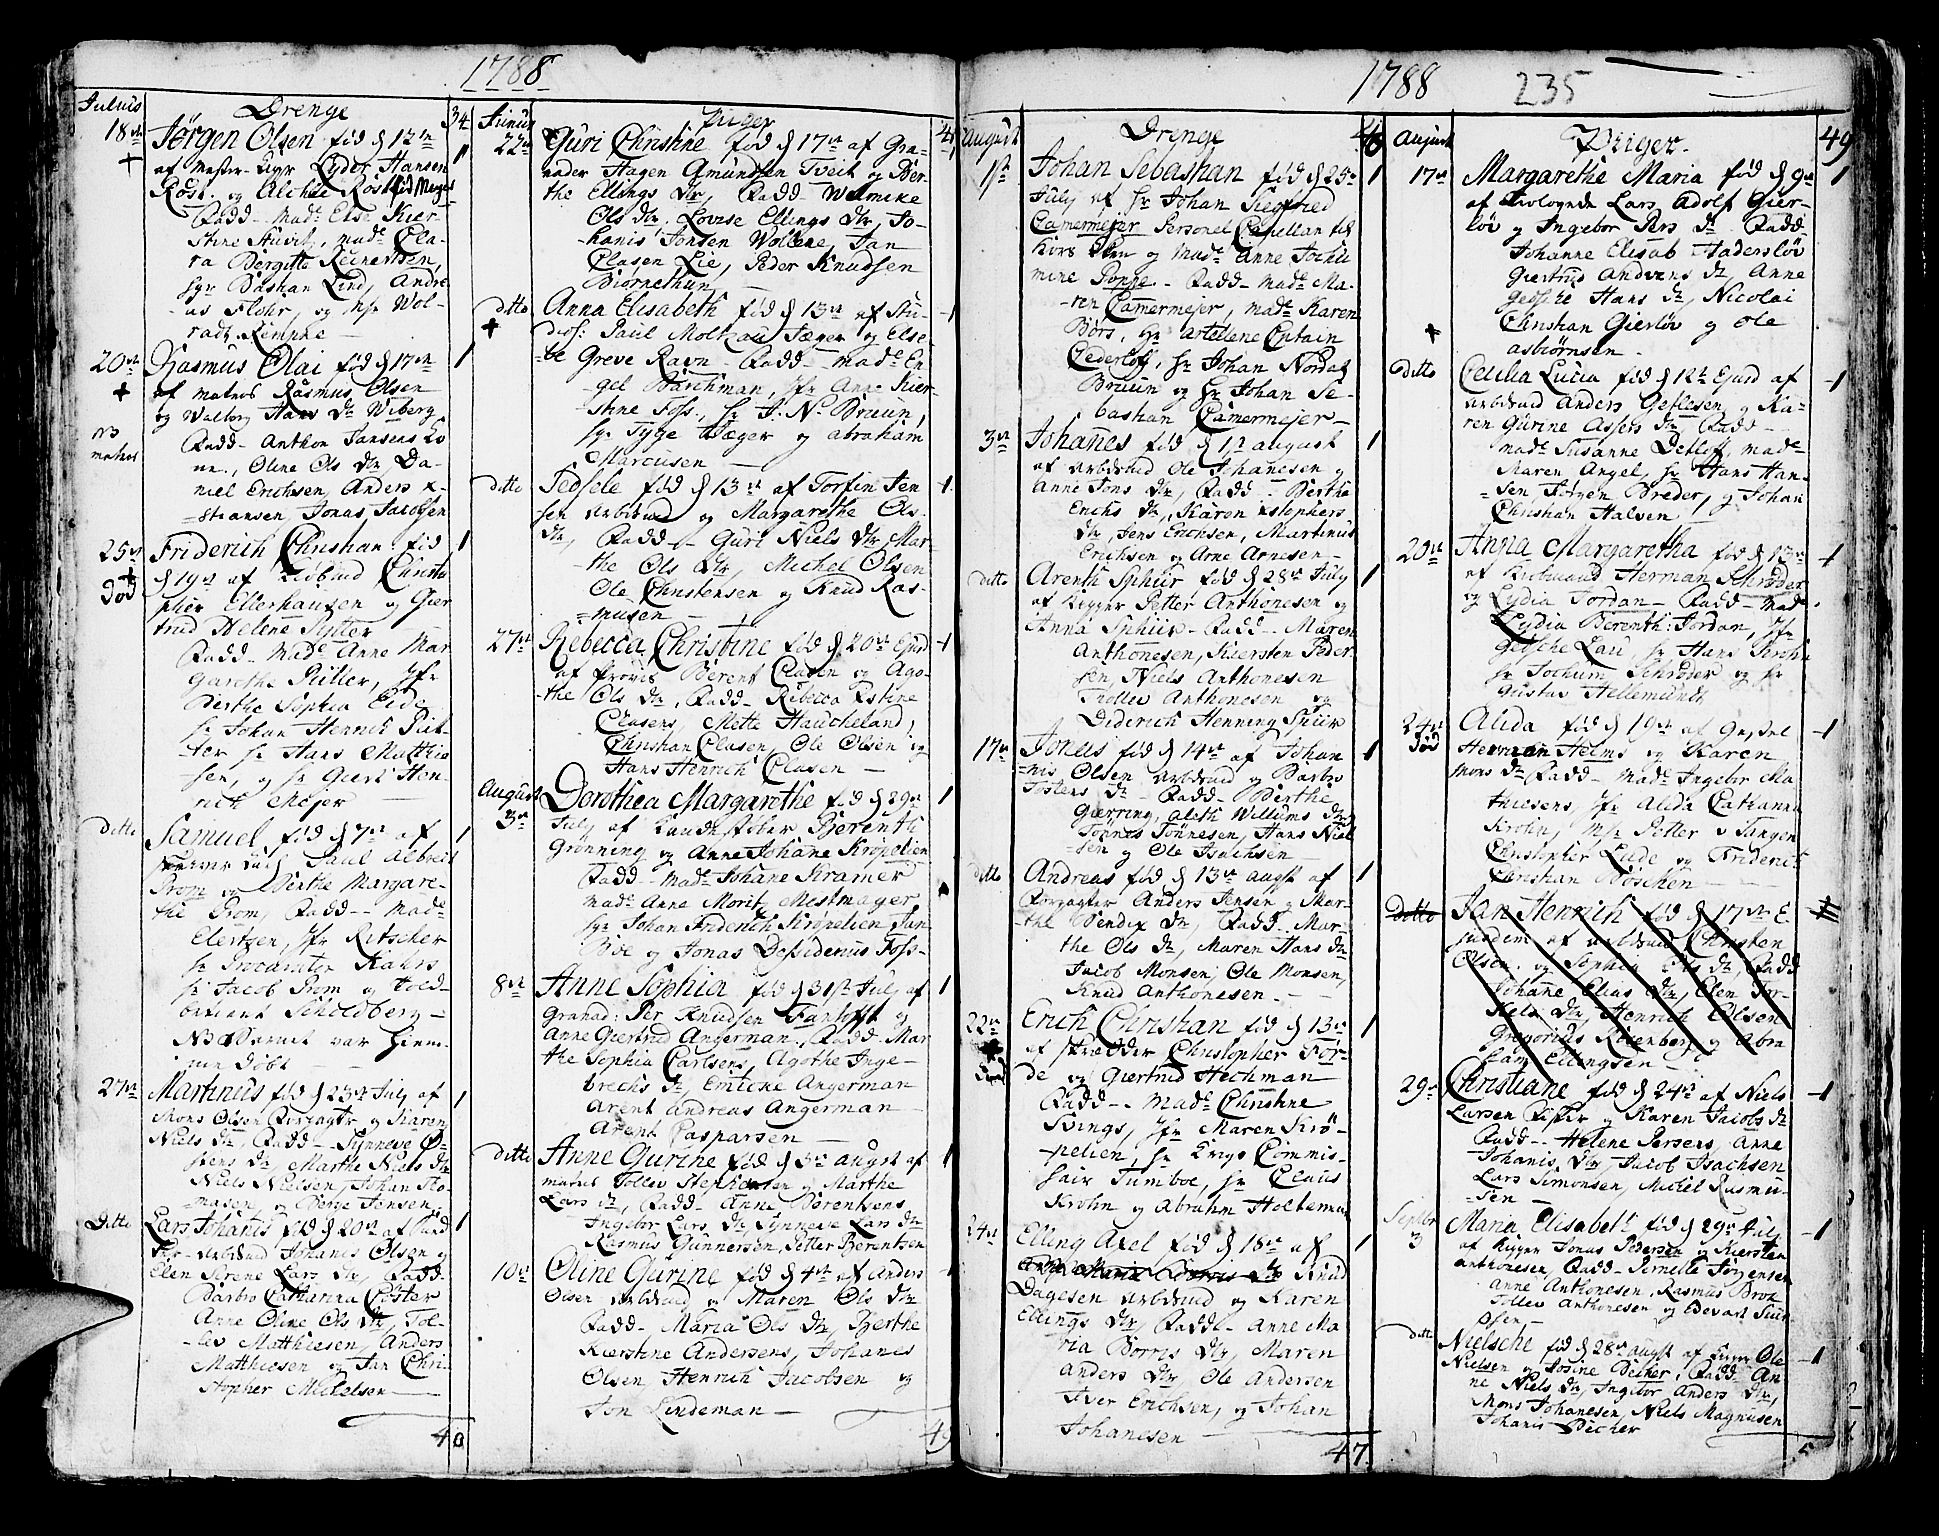 1788
Julius
Drenge
34
18de
Jørgen Olsen fød d 12te
af Mester Lyder Hansen
Røst og Alchie Røst fød Meyer
Fadd- Made Else Kier-
stine Stuvitz, Made Cla-
ra Bergitte Reinertsen,
Sgr Bastian Lind, Andre-
as Flohr, og Wol-
rath Kempke
20de
Rasmus Olai fød d 17de
1
af Matros Rasmus Olsen
og Walborg Hans Dr Wiberg
NB
matros
Fadd- Anthon Jansens Ko
ne, Oline Ols Dtr, Da-
niel Erichsen, Anders
Jonas Jacobsen
25de
Friderich Christian fød
1
død
d 19de af Christo
pher Ellerhausen og Gier
trud Helene Pytter
Fadd- Made Anne Mar
garethe Piller, Jfr
Berthe Sophia Eide
Sr Johan Henrich Püt-
ter Sr Hans Matthie
sen, og Sr Giert Hen-
rich Meyer
ditto
Samuel fød d 7de af
1
Paul Albrect
Prom og Berthe Margare-
the Prom, Fadd- Made
Elertsen, Jfr Ritscher
Kahrs
Sr Jacob Prom og
Scholdberg
NB Barnet var hiem-
me døbt
27de
Martinus fød d 23de July af
1
Mons Olsen og Karen
Niels Dr, Fadd- Synneve O-
stens Dr, Marthe Niels Dtr
Niels Nielsen, Johan Tho-
masen, og Børge Jensen
Ditto
Lars Johanis fød d 20de af
1
Arbdmd Johanis Olsen og
Elen Serene Lars Dtr, Fadd-
Barbro Catharina Coster
Anne Oline Ols Dtr, Tol-
lev Matthiesen, Anders
Matthiesen og Jan Chri-
stopher Mickelsen
40
Junius
Piger
41
22de
Guri Christine fød d 17de af Gra-
nader Hagen Amundsen Tveit og Ber-
the Ellings Dtr, Fadd- Welmike
Ols Dtr, Lovise Ellings Dtr, Jo-
hanis Jonsen Wollene, Jan
Clasen Lie, Peder Knudsen
Biørnethun
ditto
Anna Elisabeth fød d 13de af Stu-
1
dios: Paul Moltzau Jæger og Else-
be Greve Ravn- Fadd- Made En-
gel Barchman, Jfr Anne Kier-
stine Foss, Sr J. N. Bruun,
Sgr Tyge Jæger og Abraham
Marcusen
ditto
d 13de af Torfin Jen
1
sen Arbdmd og Margarethe Ols
Dr, Fadd- Guri Niels Dtr Mar-
the Ols Dtr, Michel Olsen
Ole Christensen og Knud Ras-
musen
27de
Rebecca Christine fød d 20de Ejusd
1
af Provst Berent Clasen og Ago-
the Ols Dr, Fadd- Ribecca Estine
Clasens, Mette Hauckeland,
Christian Clasen, Ole Olsen og
Hans Henrich Clasen
August
3de
Dorothea Margarethe fød d 29de
1
July af Bierenth
Grønning og Anne Johane Krøpelien
Fadd- Made Johane Kramer
Made Anne Morit Mestmager,
Sgr Johan Friderich Krøpelien Jan
Böe og Jonas Desiderius Foss-
8de
Anne Sophia fød d 31st July af
1
Granad: Per Knudsen Fantoft og
Anne Giertrud Angerman, Fadd- Mar
the Sophia Carlsens, Agothe Inge-
brechs Dr, Emicke Angerman
Arent Andreas Angerman
Arent Casparsen
ditto
Anne Gurine fød d 3de Augst af
1
matros Tollev Stephensen og Marthe
Lars Dr, Fadd- Anne Berentsens
Ingebor Lars Dr Synneve Lars Dr
Rasmus Gunnersen, Petter Berentsen
10de
Oline Gurine fød d 4de af Anders
1
Olsen Arbdmd og Maren Ols Dtr
Fadd- Maria Ols Dtr, Berthe
Kierstine Andersens, Johanis
Olsen, Henrich Jacobsen og
Jon Lindeman
49
1788
235
August
Drenge
40
1st
Johan Sebastian fød d 25de
1
July af Hr Johan Siegfried
Camermejer Personel Capellan til
Kors Kirken og Made Anne Joachi
mine Poppe- Fadd- Made Ma-
ren Camermejer, Made Karen
Børs, Hr Artellerie Captain
Cederloff, Sr Johan Nordal
Bruun og Sr Johan Se-
bastian Camermejer
3de
Johanes fød d 1st August
1
af Arbdmd Ole Johanesen og
Anne Jons Dtr, Fadd- Berthe
Erichs Dtr, Karen Estephers
Dtr, Jens Erichsen, Martinus
Erichsen og Arne Arnesen
ditto
Arenth Sphiir fød d 28de July
1
af Rigger Petter Anthonesen og
Anna Sphiir- Fadd- Maren
Anthonesen, Kiersten Peder-
sen, Niels Anthonesen
Tollev Anthonesen og
Diderich Henning Spiir
17de
Johnes fød d 14de af Johan
1
nis Olsen Arbdmd og Barbro
Tostens Dr- Fadd- Berthe
Gierring, Aleth Willums Dtr
Tønnes Tønnesen, Hans Niel
sen og Ole Isachsen
ditto
Andreas fød d 13de Augst af
1
Borgagter Anders Jensen og Mar-
the Bendix Dtr, Fadd. Mar-
the Ols Dr, Maren Hans Dr
Jacob Monsen, Ole Monsen,
Knud Anthonesen.
22de
Erich Christian fød d 13de
1
af Skrædder Christopher För-
de og Giertrud Heckman
Fadd- Made Christine
Svings, Jfr Maren Krö-
pelien, Sr Krigs Commis-
sair Tumboe, Sr Claus
Krohn og Abrahm Holterman
24de
Elling Axel fød d 18de af
1
Knud
Dagesen Arbdmd og Karen
Ellings Dtr, Fadd- Anne Ma
ria Borris Dtr, Maren
Anders Dtr Ole Andersen
Iver Erichsen, og Johan
Johanesen
47
1788
August
Piger
49
17de
Margarethe Maria fød d 9de
1
af Lars Adolf Gier-
löv og Ingebor Pers Dr Fadd-
Johanne Elisab Haderslöv
Giertrud Andreas Dr, Anne
Gesche Hans Dr, Nicolai
Christian Gierlöv og Ole
Asbiørnsen
ditto
Cecilia Lucia fød d 12te Ejusd af
1
Arbdmd Anders Geflesen og Ka-
ren Gurine Assers Dtr, Fadd-
Made Susanne Detloff, Made
Maren Angel, Sr Hans Han-
sen, Jørgen Breder, og Johan
Christian Halsen
20de
Anna Margaretha fød d 13de
1
af Kiobmand Herman Schröder
og Lydia Jordan- Fadd- Made
Lydia Berenth: Jordan, Jfr
Gesche Lau, Sr Hans Krohn
Sr Jochum Schröder og Sr
Gustav Hellemundt
24de
død
Alida fød d 19de af
1
Herman Helms og Karen
Mons Dr Fadd- Made Ingebr Ma
thiesens, Jfr Alida Catharina
Krohn, Petter v Tangen
Christopher Lude og Friderich
Christian Böschen
Ditto
Jan Henrich fød d 17de E-
jusdem af Arbdmd Christen
Olsen og Sophia Ols Dr, Fadd
Johanne Elias Dtr, Elen Tor-
kels Dtr, Henrich Olsen
Gregorius Rosenberg og Abra
ham Ellingsen
29de
Christiane fød d 24de af Niels
1
Larsen og Karen Jacobs Dr
Fadd- Helene Persens, Anne
Johanis Dtr, Jacob Isachsen
Lars Simonsen, Michel Rasmu-
sen
Septbr
3
Maria Elisabeth fød d 29de July
1
af Rigger Jonas Pedersen og Kiersten
Anthonesen, Fadd- Pernille Jørgensen
Anne Anthonesen, Rasmus Brox
Tollev Anthonesen og Edevart
ditto
Nielsche fød d 28de Augst af Ole
1
Nielsen og Josine Becker, Fadd- An
ne Niels Dr, Ingebor Anders Dr,
Mons Johanesen, Niels Magnusen
Johanis Becher